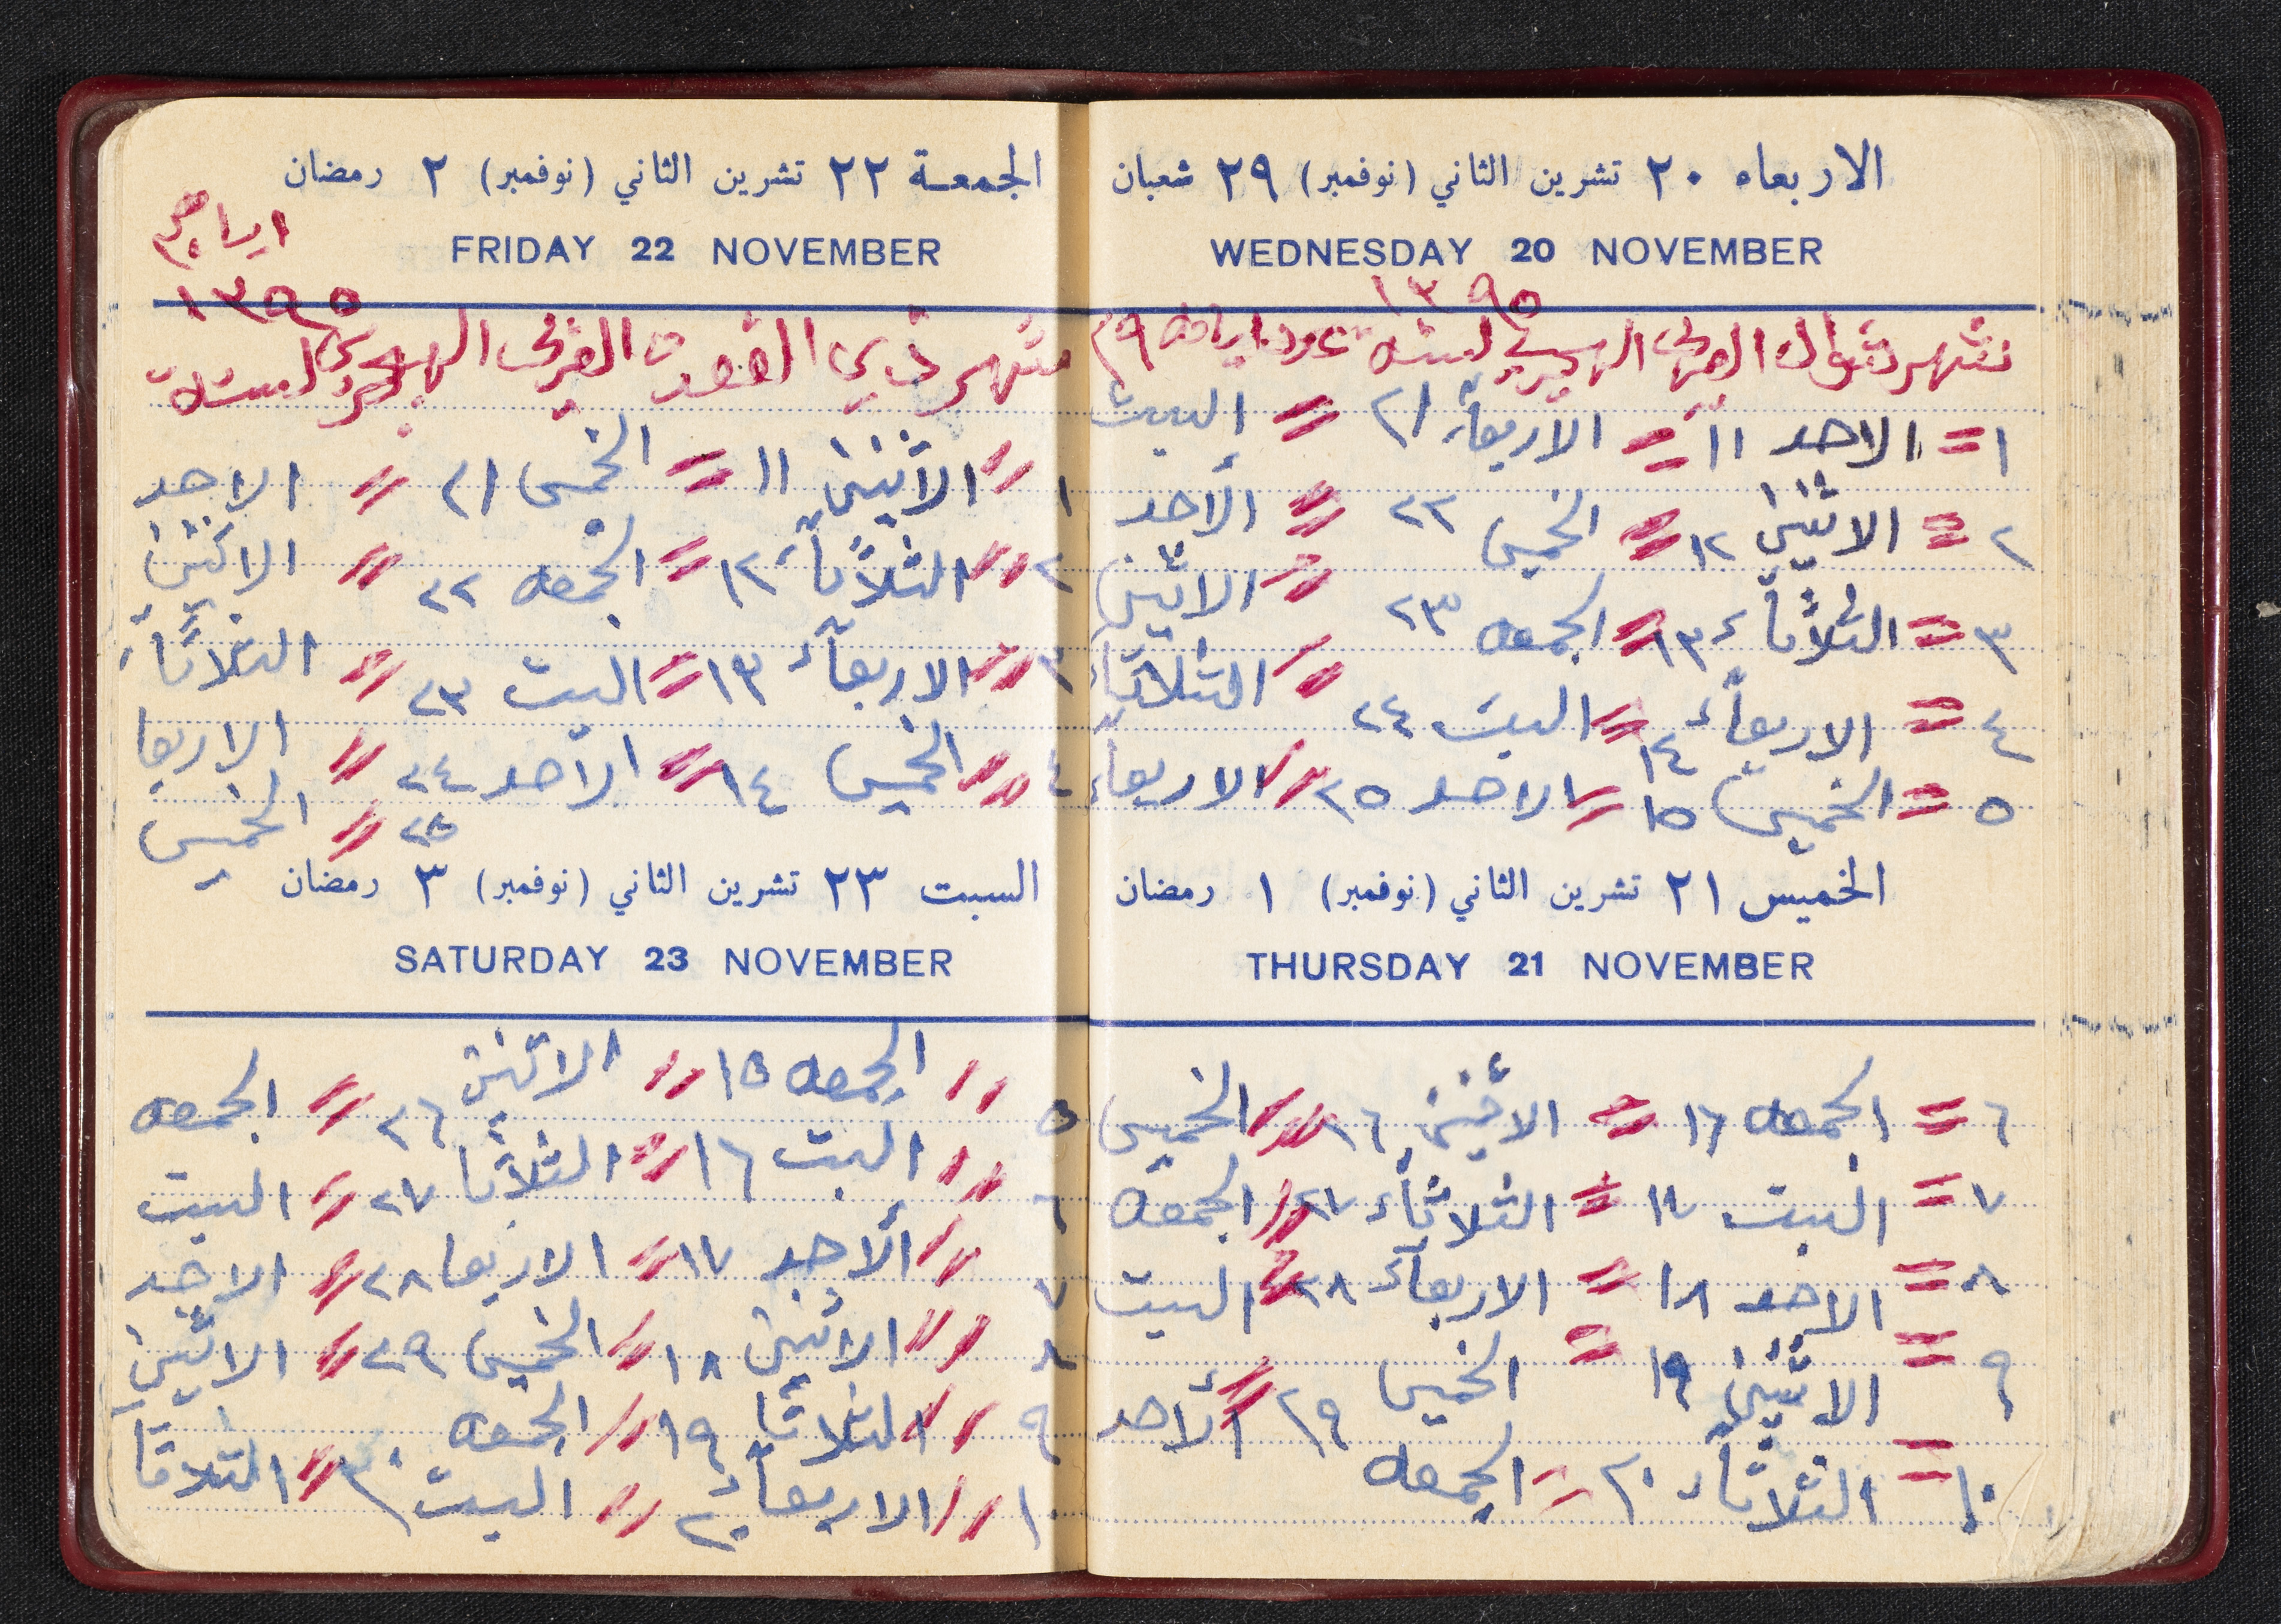 الاربعاء ٢٠ تشرين الثاني (نوفمبر) ٢٩ شعبان
WEDNESDAY 20 NOVEMBER
١٣٩٥
شهر شوال العربي الهجري لسنة عدد ايامه ٢٩
١ = الاحد ١١ = الاربعاء ٢١ = السبت
٢ = الاثنين ١٢ = الخميس ٢٢ = الأحد
٣ = الثلاثاء ١٣ = الجمعه ٢٣ = الاثنين
٤ = الاربعاء ١٤ = السبت ٢٤ = الثلاثاء
٥ = الخميس ١٥ = الاحد ٢٥ = الاربعاء
الخميس ٢١ تشرين الثاني (نوفمبر) ١ رمضان
THURSDAY 21 NOVEMBER
٦ = الجمعه ١٦ = الاثنين ٢٦ = الخميس
٧ = السبت ١٧ = الثلاثاء ٢٧ = الجمعه
٨ = الاحد ١٨ = الاربعاء ٢٨ = السبت
٩ = الاثنين ١٩ = الخميس ٢٩ = الأحد
١٠ = الثلاثاء ٢٠ = الجمعه
الجمعة ٢٢ تشرين الثاني (نوفمبر) ٢ رمضان
FRIDAY 22 NOVEMBER
١٣٩٥
شهر ذي القعدة العربي الهجري لسنة
١ = الأثنين ١١ = الخميس ٢١ = الاحد
٢ = الثلاثاء ١٢ = الجمعه ٢٢ = الاثنين
٣ = الاربعاء ١٣ = السبت ٢٣ = الثلاثاء
٤ = الخميس ١٤ = الأحد ٢٤ = الاربعا
٢٥ = الخميس
السبت ٢٣ تشرين الثاني (نوفمبر) ٣ رمضان
SATURDAY 23 NOVEMBER
٥ = الجمعه ١٥ = الاثنين ٢٦ = الجمعه
٦ = السبت ١٦ = الثلاثا ٢٧ = السبت
٧ = الأحد ١٧ = الاربعا ٢٨ = الاحد
٨ = الاثنين ١٨ = الخميس ٢٩ = الاثنين
٩ = الثلاثا ١٩ = الجمعه ٣٠ = الثلاثا
١٠ = الاربعاء ٢٠ = السبت